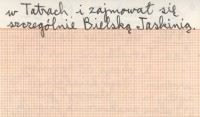 w Tatrach i zajmował się
szczególnie Bielską Jaskinią.